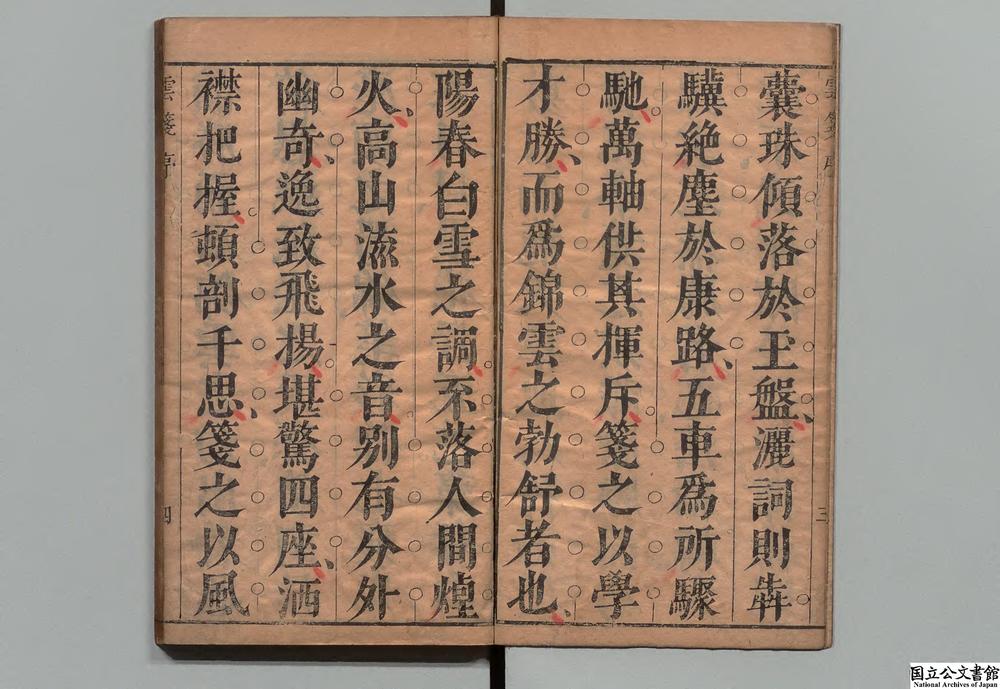 雲箋 序 三
囊珠傾落於玉盤、灑詞則犇
驥絶塵於康路、五車爲所驟
馳、萬軸供其揮斥、箋之以學
才勝、而爲錦雲之勃舒者也、
陽春白雪之調、不落人間煙
火、高山流水之音、别有分外
幽奇、逸致飛揚、堪驚四座、洒
襟把握、頓剖千思、箋之以風
雲箋 序 四
国立公文書館
National Archives of Japan